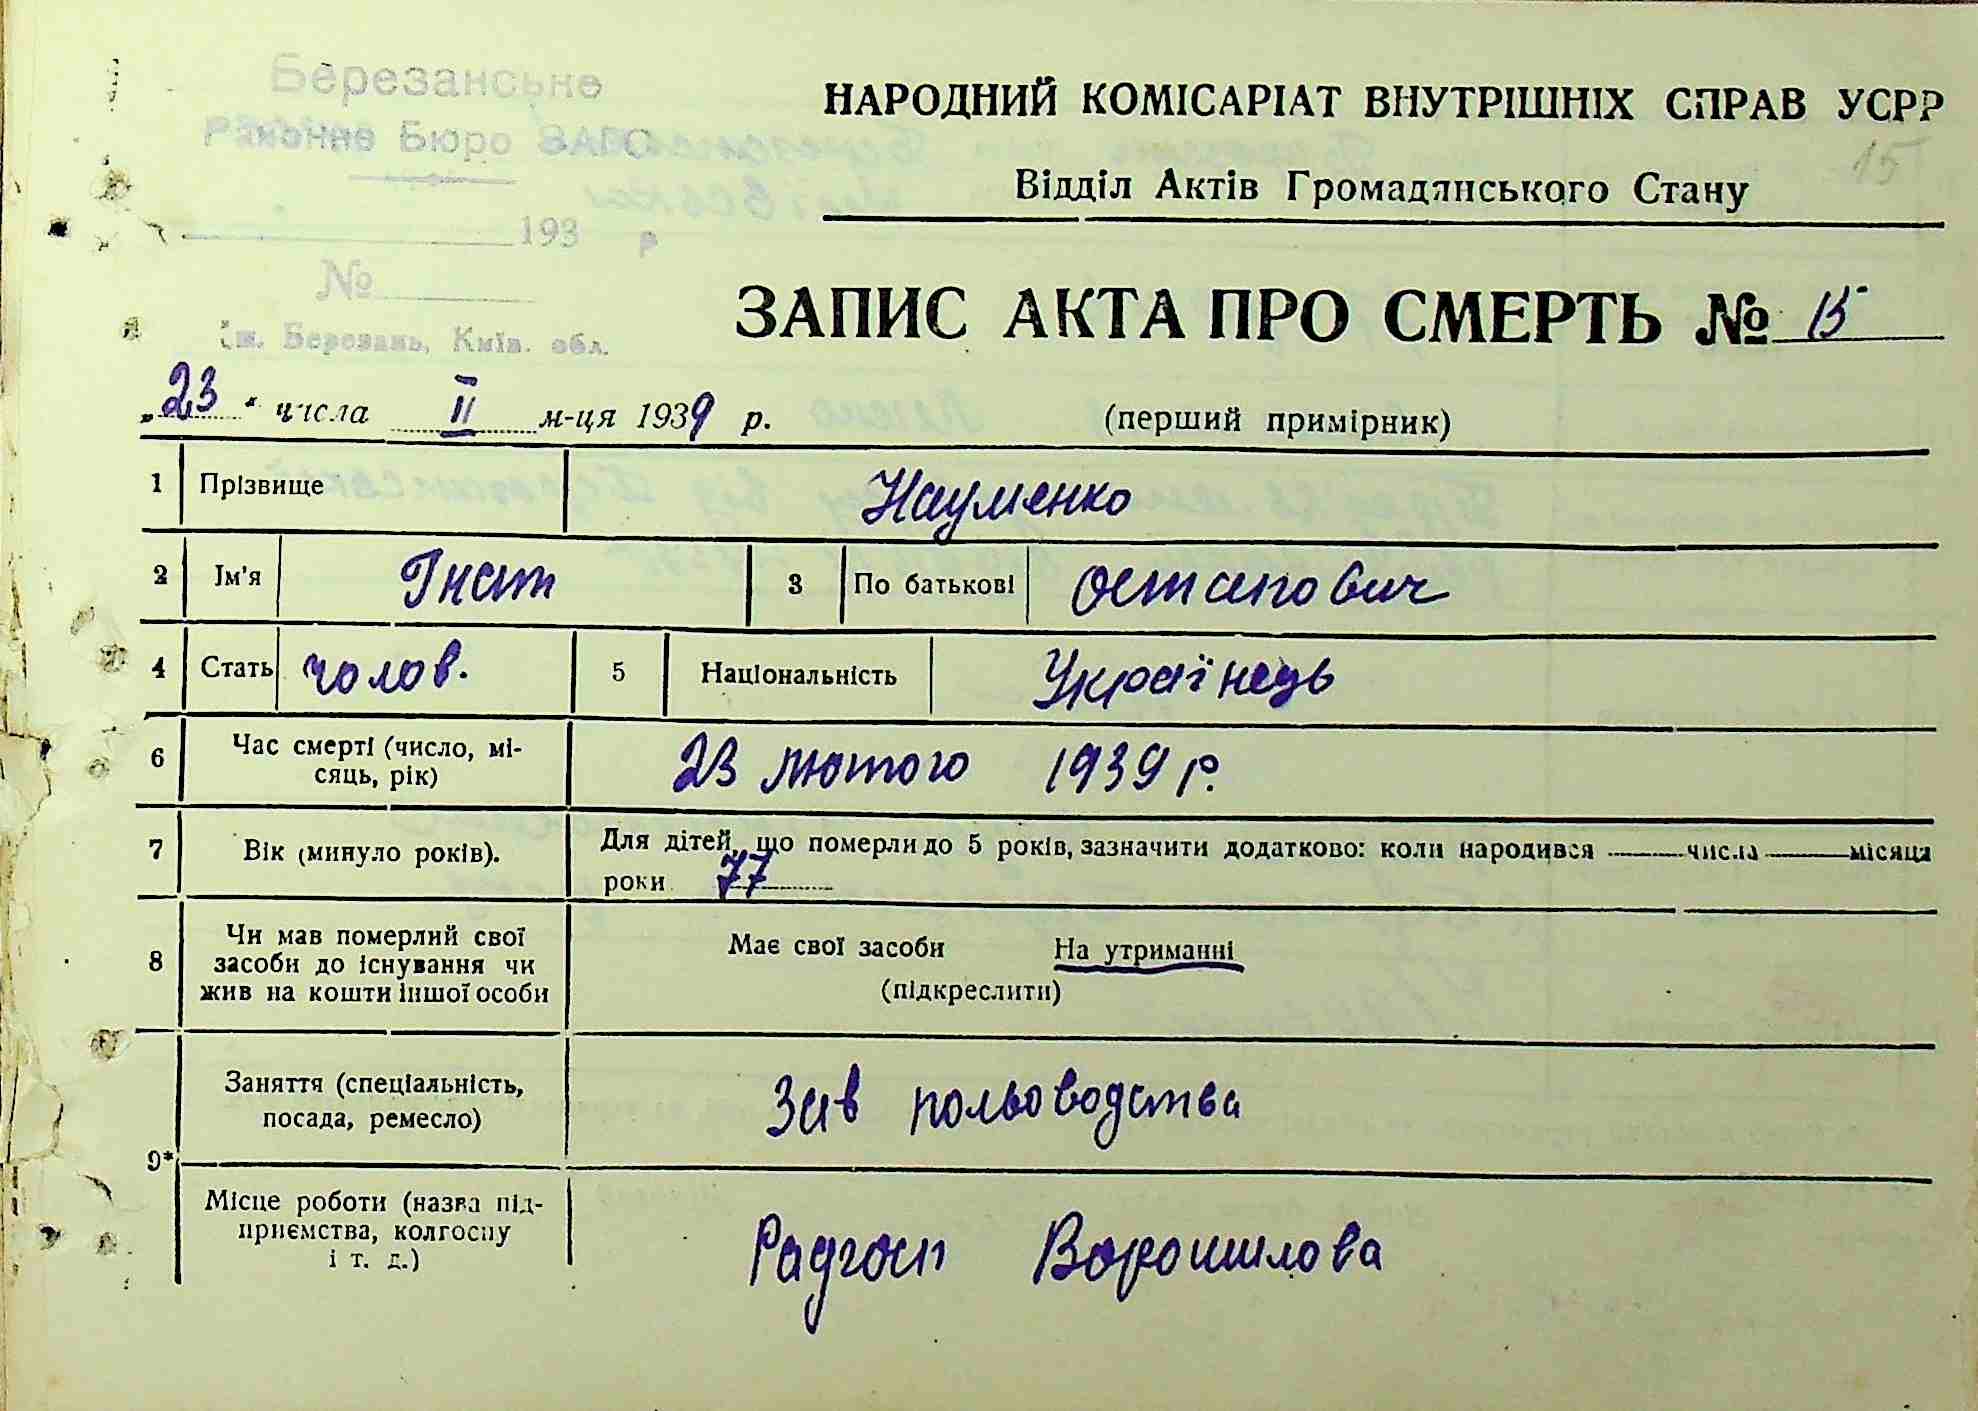 Березанське
Районне Бюро ЗАГС
193 р
№
ст. Березань, Київ. обл.
НАРОДНИЙ КОМІСАРІАТ ВНУТРІШНІХ СПРАВ УСРР
15
Відділ Актів Громадянського Стану
ЗАПИС АКТА ПРО СМЕРТЬ № 15
„23" числа II м-ця 1939 р. (перший примірник)
1 Прізвище Науменко
2 Ім'я Гнат 3 По батькові Остапович
4 Стать чолов. 5 Національність Українець
6 Час смерті (число, мі-
сяць, рік) 23 лютого 1939 р.
7 Вік (минуло років). Для дітей, що померли до 5 років, зазначити додатково: коли народився —— числа —— місяця
роки 77
8 Чи мав померлий свої
засоби до існування чи
жив на кошти іншої особи
Має свої засоби На утриманні
(підкреслити)
9*
Заняття (спеціальність,
посада, ремесло) Зав польоводства
Місце роботи (назва під-
приємства, колгоспу
і т. д.) Радгосп Ворошилова